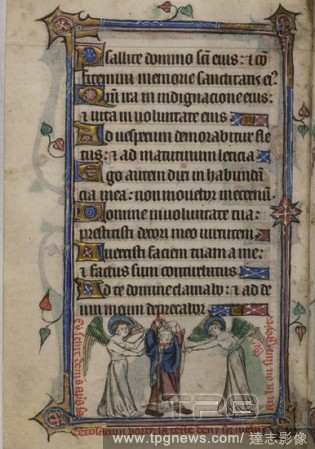 Psallite domino sc̄i eius: ⁊ cō
fitemini memorie sanctitatis ei⁹
Qm̄ ira in indignacione eius:
⁊ uita in uoluntate eius
Ad uesperum demorabitur fle
tus: ⁊ ad matutinum leticia
Ego autem dixi in habund
cia mea: non mouebor in eternū
Domine in uoluntate tua:
prestitisti decori meo uirtutem
Auertisti faciem tuam a me:
⁊ factus sum conturbatus
Ad te domine clamabo: ⁊ ad de
um meum deprecabor
TPG
www.tpgnews.com / 達志影像